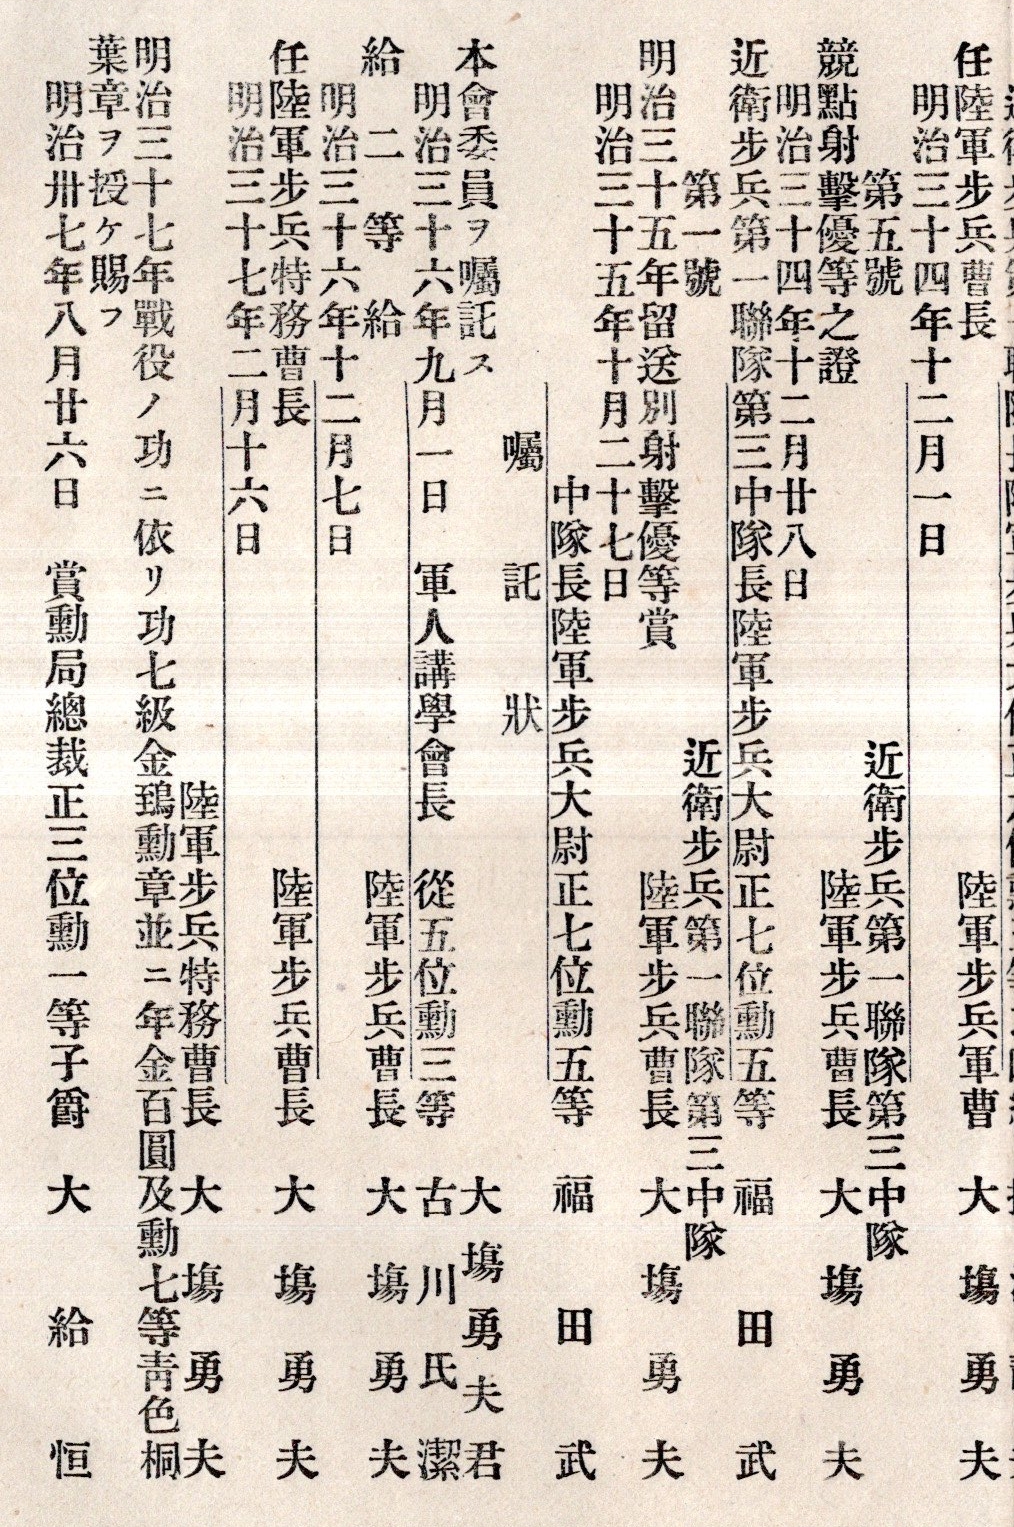 任陸軍步兵曹長　陸軍步兵軍曹　大塲勇夫
明治三十四年十二月一日
第五號　近衛步兵第一聯隊第三中隊
競點射擊優等之證　陸軍步兵曹長　大塲勇夫
明治三十四年十二月廿八日
近衛步兵第一聯隊第三中隊長陸軍步兵大尉正七位勳五等　福田武
第一號　近衛步兵第一聯隊第三中隊
明治三十五年留送別射擊優等賞　陸軍步兵曹長　大塲勇夫
明治三十五年十月二十七日
中隊長陸軍步兵大尉正七位勳五等　福田武
囑託狀
本會委員ヲ囑託ス　大塲勇夫君
明治三十六年九月一日　軍人講學會長　從五位勳三等　古川氏潔
給二等給　陸軍步兵曹長　大塲勇夫
明治三十六年十二月七日
任陸軍步兵特務曹長　陸軍步兵曹長　大塲勇夫
明治三十七年二月十六日
陸軍步兵特務曹長　大塲勇夫
明治三十七年戰役ノ功ニ依リ功七級金鵄勳章並ニ年金百圓及勳七等靑色桐
葉章ヲ授ケ賜フ
明治卅七年八月廿六日　賞勳局總裁正三位勳一等子爵　大給恒